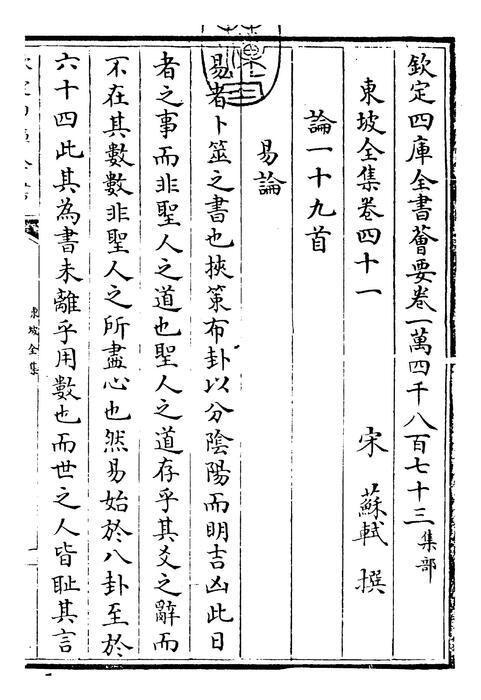 欽定四庫全書薈要卷一萬四千八百七十三集部
東坡全集卷四十一
宋 蘇軾 撰
論一十九首
易論
易者卜筮之書也挾策布卦以分陰陽而明吉凶此日
者之事而非聖人之道也聖人之道存乎其爻之辭而
不在其數數非聖人之所盡心也然易始於八卦至於
六十四此其為書未離乎用數也而世之人皆恥其言
東坡全集